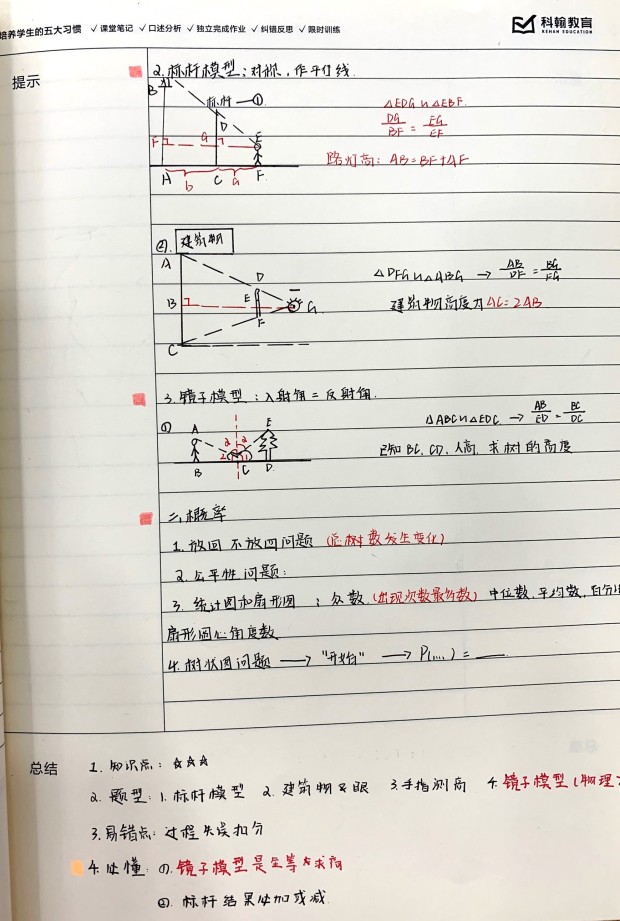 培养学生的五大习惯 ✓课堂笔记 ✓口述分析 ✓独立完成作业 ✓纠错反思 ✓限时训练
科翰教育
KEHAN EDUCATION
提示
2.标杆模型:对称,作平行线.
B
标杆 ①
D
F G E
A C F
b a
△EDG∽△EBF.
DG/BF = EG/EF
路灯高: AB=BF+AF
②.建筑物
A
D
B E G
F
C
△DFG∽△ABG → AB/DF = BG/FG
建筑物高度为AC=2AB
3.镜子模型:入射角=反射角.
①
A E
2 2
2 1
B C D
△ABC∽△EDC → AB/ED = BC/DC
已知BC, CD, 人高, 求树的高度
二、概率
1.放回 不放回问题 (总树数发生变化)
2.公平性问题:
3.统计图和扇形图 : 众数.(出现次数最多数) 中位数,平均数,百分比
扇形圆心角度数
4.树状图问题 → "开始" → P(....) =
总结
1.知识点: ☆☆☆
2.题型: 1.标杆模型 2.建筑物&眼 3.手指测高 4.镜子模型(物理
3.易错点: 过程失误扣分
4.必懂: ①.镜子模型是全等去求高
②.标杆结果必加或减.